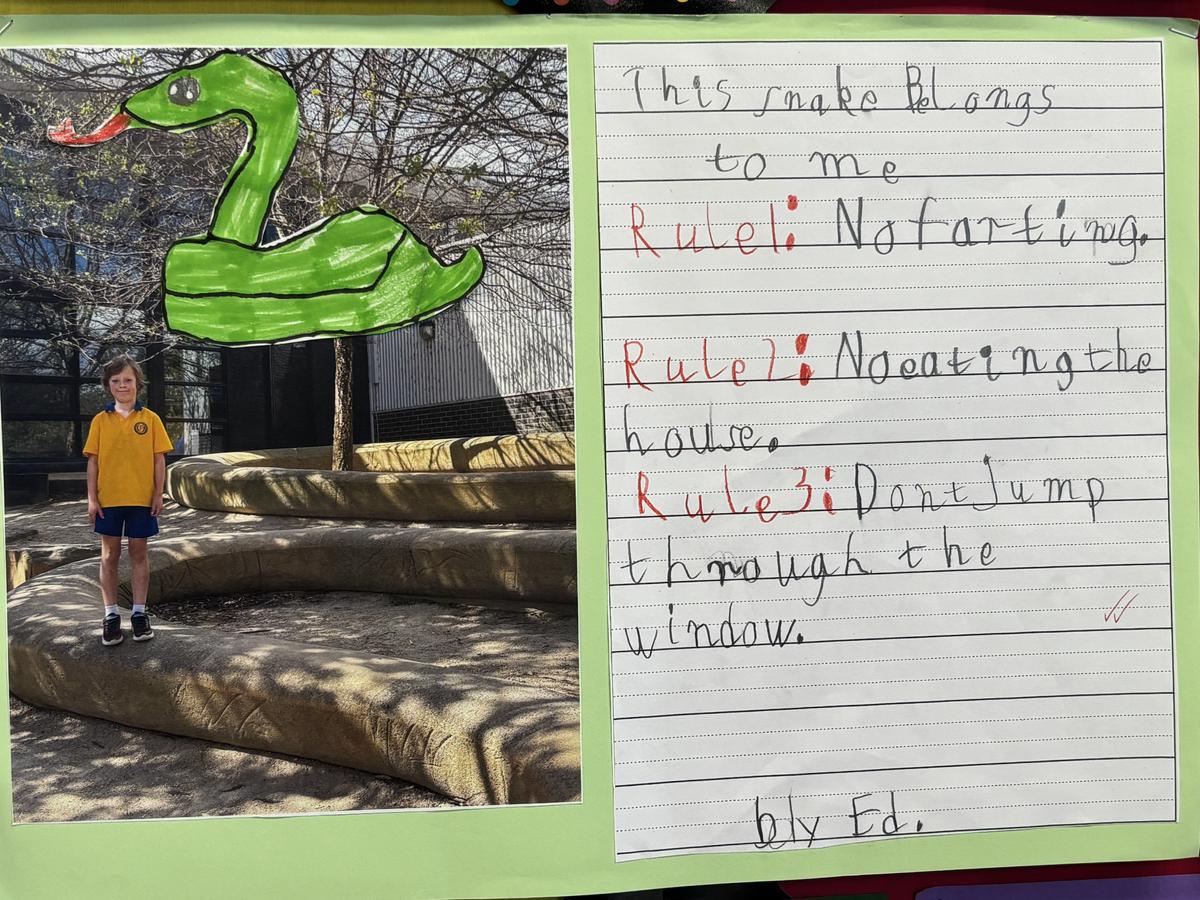 This snake Belongs
to me
Rule1: No farting.
Rule2: No eating the
house.
Rule3: Dont Jump
through the
window.
by Ed.